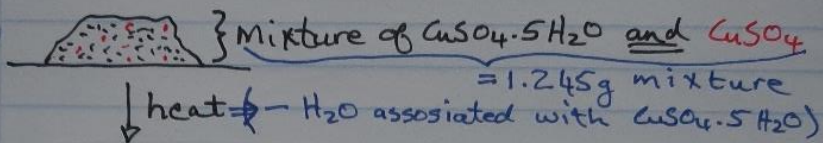 } Mixture of CuSO4.5H2O and CuSO4
= 1.245g mixture
↓ heat (- H2O assosiated with CuSO4.5H2O)